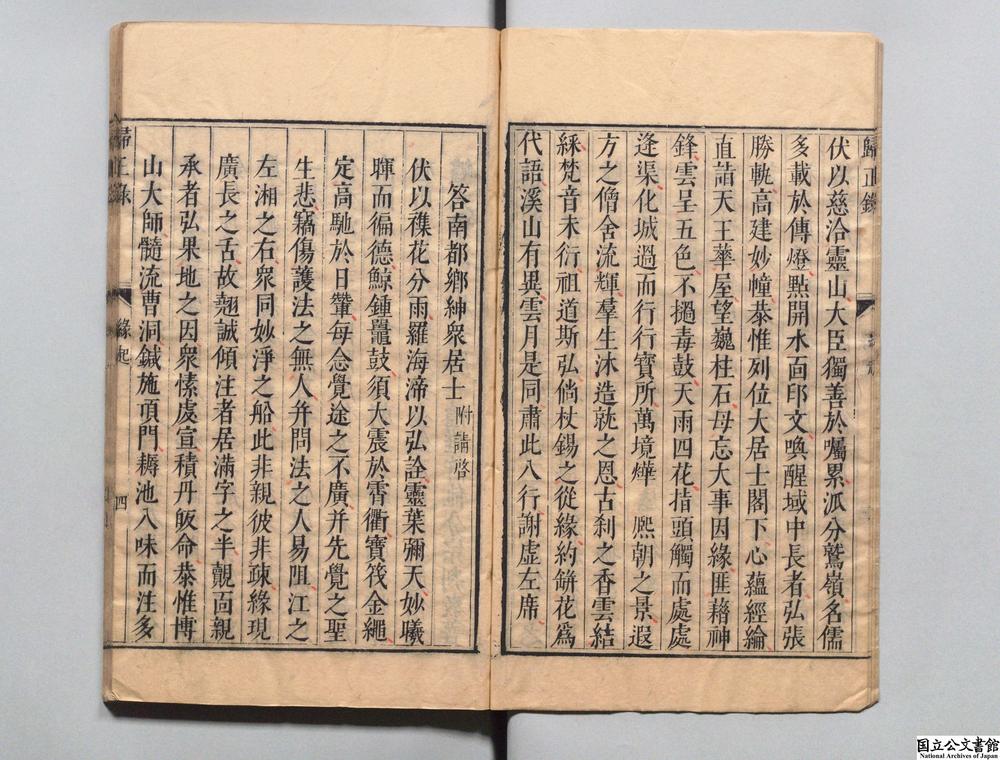 歸正錄
伏以慈洽靈山大臣獨善於囑累派分鷲嶺名儒
多載於傳燈㸃開水面印文喚醒域中長者弘張
勝軌高建妙幢恭惟列位大居士閣下心蘊經綸
直請天王華屋望巍柱石毋忘大事因緣匪藉神
鋒雲呈五色不撾毒鼓天雨四花指頭觸而處處
逢渠化城過而行行寶所萬境燁 熈朝之景遐
方之僧舍流輝羣生沐造就之恩古刹之香雲結
綵梵音未衍祖道斯弘倘杖錫之從緣約缾花爲
代語溪山有異雲月是同肅此八行謝虛左席
答南都鄉紳衆居士附請啓
伏以襍花分雨羅海渧以弘詮靈葉彌天妙曦
暉而徧德鯨鍾鼉鼓須大震於霄衢寶筏金繩
定高馳於日轂每念覺途之不廣并先覺之聖
生悲竊傷護法之無人弁問法之人易阻江之
左湘之右衆同妙淨之船此非親彼非疎緣現
廣長之舌故翹誠傾注者居滿字之半覿面親
承者弘果地之因衆愫處宣積丹皈命恭惟博
山大師髓流曹洞鍼施頂門耨池八味而注多
歸正錄
緣起
四
国立公文書館
National Archives of Japan